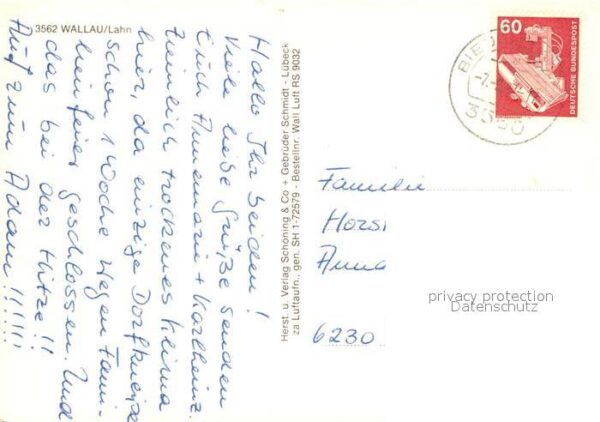 3562 WALLAU/Lahn
Hallo Ihr beiden!
Viele liebe Grüße senden
Euch Annemarie + Karlheinz.
Ziemlich trockenes Klima
hier, da einzige Dorfkneipe
schon 1 Woche wegen Fami-
lienfeier geschlossen. Und
das bei der Hitze!!
Auf zum Adam!!!!!!
Herst. u. Verlag Schöning & Co + Gebrüder Schmidt - Lübeck
za Luftaufn., gen. SH 1-72579 - Bestellnr. Wall Luft RS 9032
60
DEUTSCHE BUNDESPOST
Familie
Horst
Anna
6230
privacy protection
Datenschutz